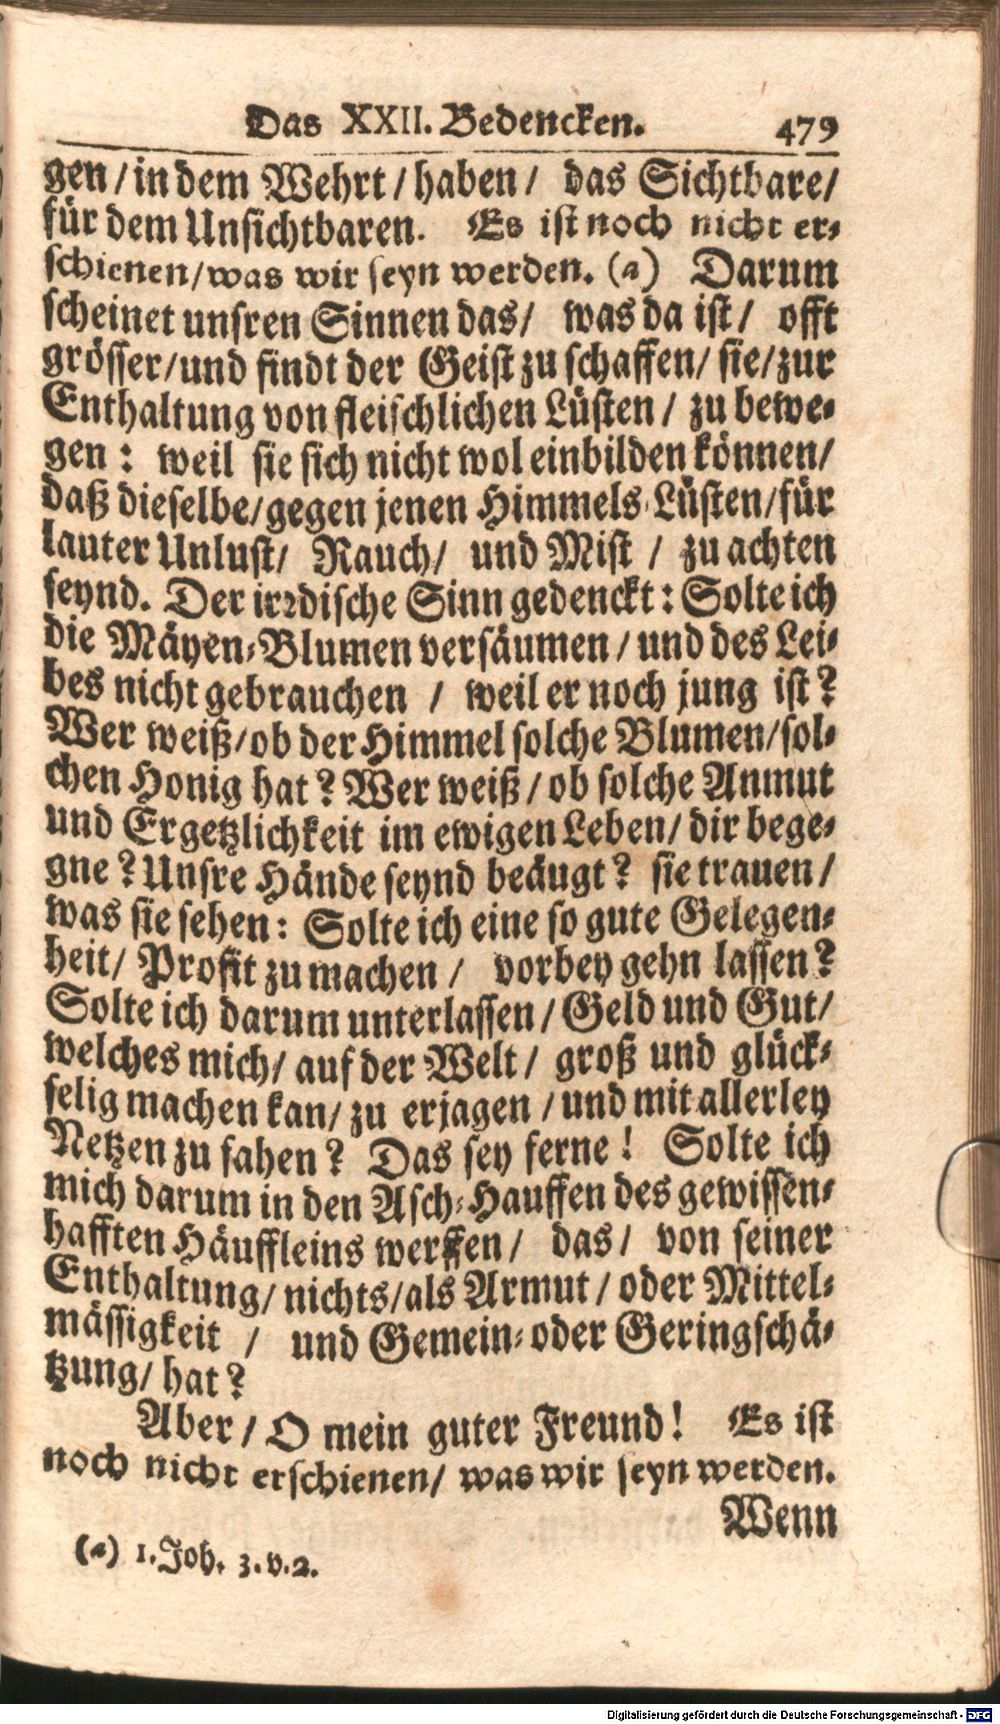 Das XXII. Bedencken. 479
gen / in dem Wehrt / haben / das Sichtbare /
für dem Unsichtbaren. Es ist noch nicht er-
schienen / was wir seyn werden. (a) Darum
scheinet unsren Sinnen das / was da ist / offt
grösser / und findt der Geist zu schaffen / sie / zur
Enthaltung von fleischlichen Lüsten / zu bewe-
gen : weil sie sich nicht wol einbilden können /
daß dieselbe / gegen jenen Himmels-Lüsten / für
lauter Unlust / Rauch / und Mist / zu achten
seynd. Der irrdische Sinn gedenckt : Solte ich
die Mäyen-Blumen versäumen / und des Lei-
bes nicht gebrauchen / weil er noch jung ist ?
Wer weiß / ob der Himmel solche Blumen / sol-
chen Honig hat ? Wer weiß / ob solche Anmut
und Ergetzlichkeit im ewigen Leben / dir bege-
gne ? Unsre Hände seynd beäugt ? sie trauen /
was sie sehen : Solte ich eine so gute Gelegen-
heit / Profit zu machen / vorbey gehn lassen ?
Solte ich darum unterlassen / Geld und Gut /
welches mich / auf der Welt / groß und glück-
selig machen kan / zu erjagen / und mit allerley
Netzen zu fahen ? Das sey ferne ! Solte ich
mich darum in den Asch-Hauffen des gewissen-
hafften Häuffleins werffen / das / von seiner
Enthaltung / nichts / als Armut / oder Mittel-
mässigkeit / und Gemein- oder Geringschä-
tzung / hat ?
Aber / O mein guter Freund ! Es ist
noch nicht erschienen / was wir seyn werden.
Wenn
(a) 1. Joh. 3. v. 2.
Digitalisierung gefördert durch die Deutsche Forschungsgemeinschaft - DFG